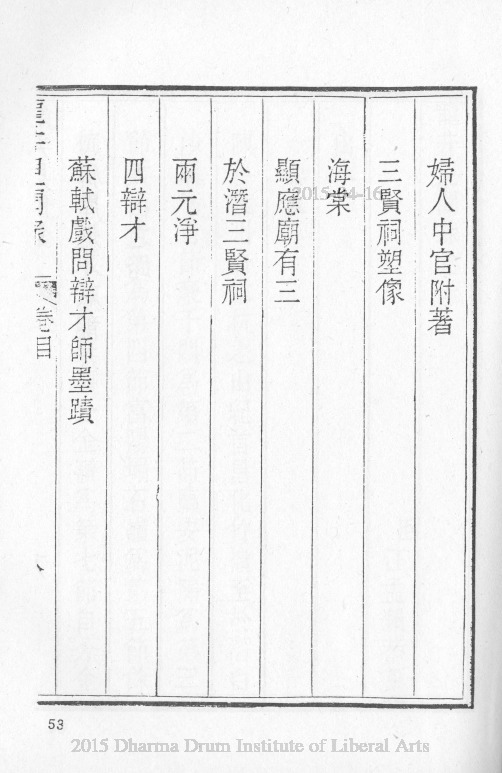 婦人中官附著
三賢祠塑像
海棠
顯應廟有三
於潛三賢祠
兩元淨
四辯才
蘇軾戲問辯才師墨蹟
卷目
53
2015-04-16
2015 Dharma Drum Institute of Liberal Arts